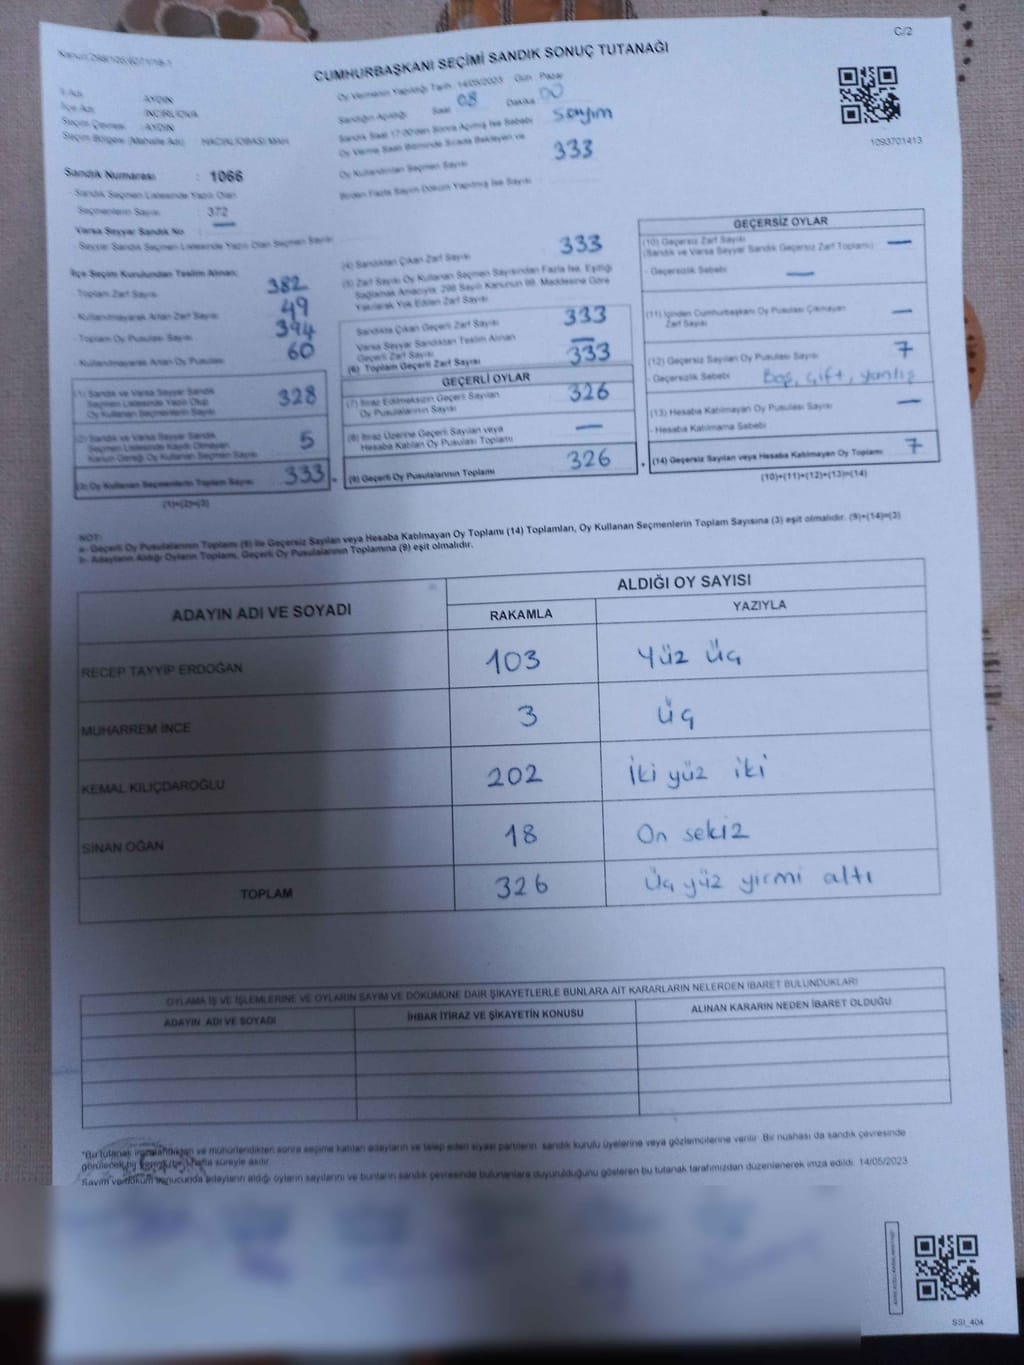 C/2
CUMHURBAŞKANI SEÇİMİ SANDIK SONUÇ TUTANAĞI
1093701413
İl Adı : AYDIN
İlçe Adı : İNCİRLİOVA
Seçim Çevresi : AYDIN
Seçim Bölgesi (Mahalle Adı) : HACIALİOBASI MAH.
Sandık Numarası : 1066
Sandık Seçmen Listesinde Yazılı Olan
Seçmenlerin Sayısı : 372
Varsa Seyyar Sandık No : —
Seyyar Sandık Seçmen Listesinde Yazılı Olan Seçmen Sayısı
Oy Vermenin Yapıldığı Tarih: 14/05/2023 Gün: Pazar
Sandığın Açıldığı Saat 08 Dakika 00
Sandık Saat 17:00'den Sonra Açılmış İse Sebebi Sayım
Oy Verme Saati Bitiminde Sırada Bekleyen ve
Oy Kullandırılan Seçmen Sayısı 333
Birden Fazla Sayım Döküm Yapılmış İse Sayısı
İlçe Seçim Kurulundan Teslim Alınan;
- Toplam Zarf Sayısı 382
- Kullanılmayarak Artan Zarf Sayısı 49
- Toplam Oy Pusulası Sayısı 394
- Kullanılmayarak Artan Oy Pusulası 60
(1) Sandık ve Varsa Seyyar Sandık
Seçmen Listesinde Yazılı Olup
Oy Kullanan Seçmenlerin Sayısı 328
(2) Sandık ve Varsa Seyyar Sandık
Seçmen Listesinde Kayıtlı Olmayan
Kanun Gereği Oy Kullanan Seçmen Sayısı 5
(3) Oy Kullanan Seçmenlerin Toplam Sayısı 333
(1)+(2)=(3)
(4) Sandıktan Çıkan Zarf Sayısı 333
(5) Zarf Sayısı Oy Kullanan Seçmen Sayısından Fazla İse, Eşitliği
Sağlamak Amacıyla, 298 Sayılı Kanunun 98. Maddesine Göre
Yakılarak Yok Edilen Zarf Sayısı
Sandıkta Çıkan Geçerli Zarf Sayısı 333
Varsa Seyyar Sandıktan Teslim Alınan
Geçerli Zarf Sayısı —
(6) Toplam Geçerli Zarf Sayısı 333
GEÇERLİ OYLAR
(7) İtiraz Edilmeksizin Geçerli Sayılan
Oy Pusulalarının Sayısı 326
(8) İtiraz Üzerine Geçerli Sayılan veya
Hesaba Katılan Oy Pusulası Toplamı —
(9) Geçerli Oy Pusulalarının Toplamı 326
GEÇERSİZ OYLAR
(10) Geçersiz Zarf Sayısı —
(Sandık ve Varsa Seyyar Sandık Geçersiz Zarf Toplamı)
- Geçersizlik Sebebi —
(11) İçinden Cumhurbaşkanı Oy Pusulası Çıkmayan
Zarf Sayısı —
(12) Geçersiz Sayılan Oy Pusulası Sayısı 7
- Geçersizlik Sebebi Boş, Çift, yanlış
(13) Hesaba Katılmayan Oy Pusulası Sayısı —
- Hesaba Katılmama Sebebi
(14) Geçersiz Sayılan veya Hesaba Katılmayan Oy Toplamı 7
(10)+(11)+(12)+(13)=(14)
NOT:
a- Geçerli Oy Pusulalarının Toplamı (9) ile Geçersiz Sayılan veya Hesaba Katılmayan Oy Toplamı (14) Toplamları, Oy Kullanan Seçmenlerin Toplam Sayısına (3) eşit olmalıdır. (9)+(14)=(3)
b- Adayların Aldığı Oyların Toplamı, Geçerli Oy Pusulalarının Toplamına (9) eşit olmalıdır.
ADAYIN ADI VE SOYADI ALDIĞI OY SAYISI
RAKAMLA YAZIYLA
RECEP TAYYİP ERDOĞAN 103 Yüz üç
MUHARREM İNCE 3 üç
KEMAL KILIÇDAROĞLU 202 İki yüz iki
SİNAN OĞAN 18 On sekiz
TOPLAM 326 Üç yüz yirmi altı
OYLAMA İŞ VE İŞLEMLERİNE VE OYLARIN SAYIM VE DÖKÜMÜNE DAİR ŞİKAYETLERLE BUNLARA AİT KARARLARIN NELERDEN İBARET BULUNDUKLARI
ADAYIN ADI VE SOYADI İHBAR İTİRAZ VE ŞİKAYETİN KONUSU ALINAN KARARIN NEDEN İBARET OLDUĞU
*Bu tutanak imzalandıktan ve mühürlendikten sonra seçime katılan adayların ve talep eden siyasi partilerin sandık kurulu üyelerine veya gözlemcilerine verilir. Bir nüshası da sandık çevresinde
görülecek bir hafta süreyle asılır.
Sayım ve döküm sonucunda adayların aldığı oyların sayılarını ve bunların sandık çevresinde bulunanlara duyurulduğunu gösteren bu tutanak tarafımızdan düzenlenerek imza edildi. 14/05/2023
SSI_404